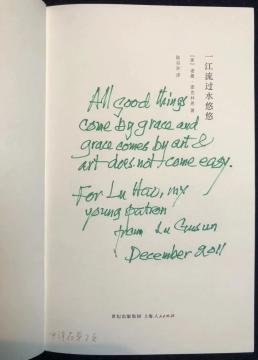 一江流过水悠悠
[美] 诺曼·麦克林恩 著
陆谷孙 译
All good things
come by grace and
grace comes by art &
art does not come easy.
For Lu Hao, my
young patron
from Lu Gusun
December 2011
世纪出版集团 上海人民出版社